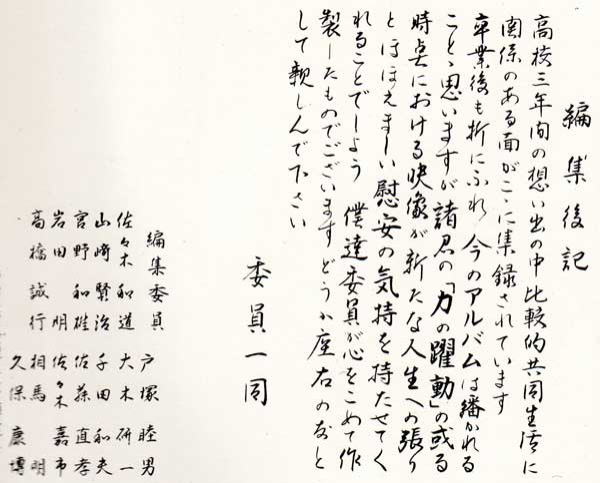 編集後記
高校三年間の想い出の中比較的共同生活に
関係のある面がこゝに集録されています
卒業後も折にふれ今のアルバムは繙かれる
ことゝ思いますが諸君の「力の躍動」の或る
時点における映像が新たな人生への張り
とほほえましい慰安の気持を持たせてく
れることでしよう 僕達委員が心をこめて作
製したものでございますどうか座右の友と
して親しんで下さい
委員一同
編集委員 戸塚睦男
佐々木和道 大木研一
山崎賢治 千田和夫
宮野和雄 佐藤直孝
岩田明 佐々木嘉市
高橋誠行 相馬明
久保康博